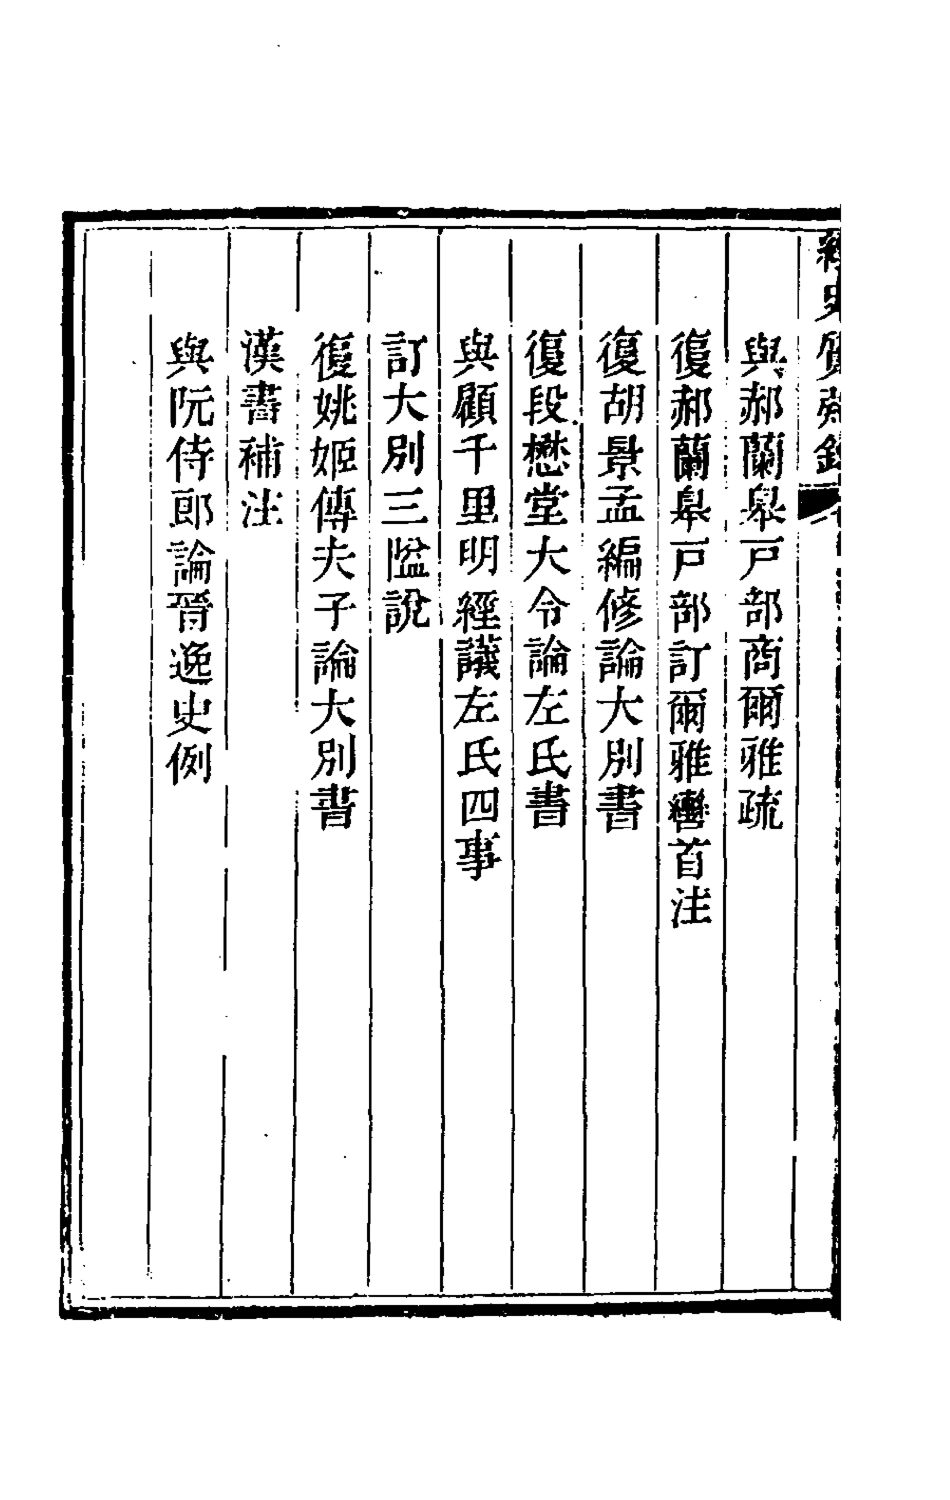 經史質疑錄
與郝蘭皋戸部商爾雅疏
復郝蘭皋戸部訂爾雅轡首注
復胡景孟編修論大別書
復段懋堂大令論左氏書
與顧千里明經議左氏四事
訂大別三隘說
復姚姬傳夫子論大別書
漢書補注
與阮侍郎論晉逸史例